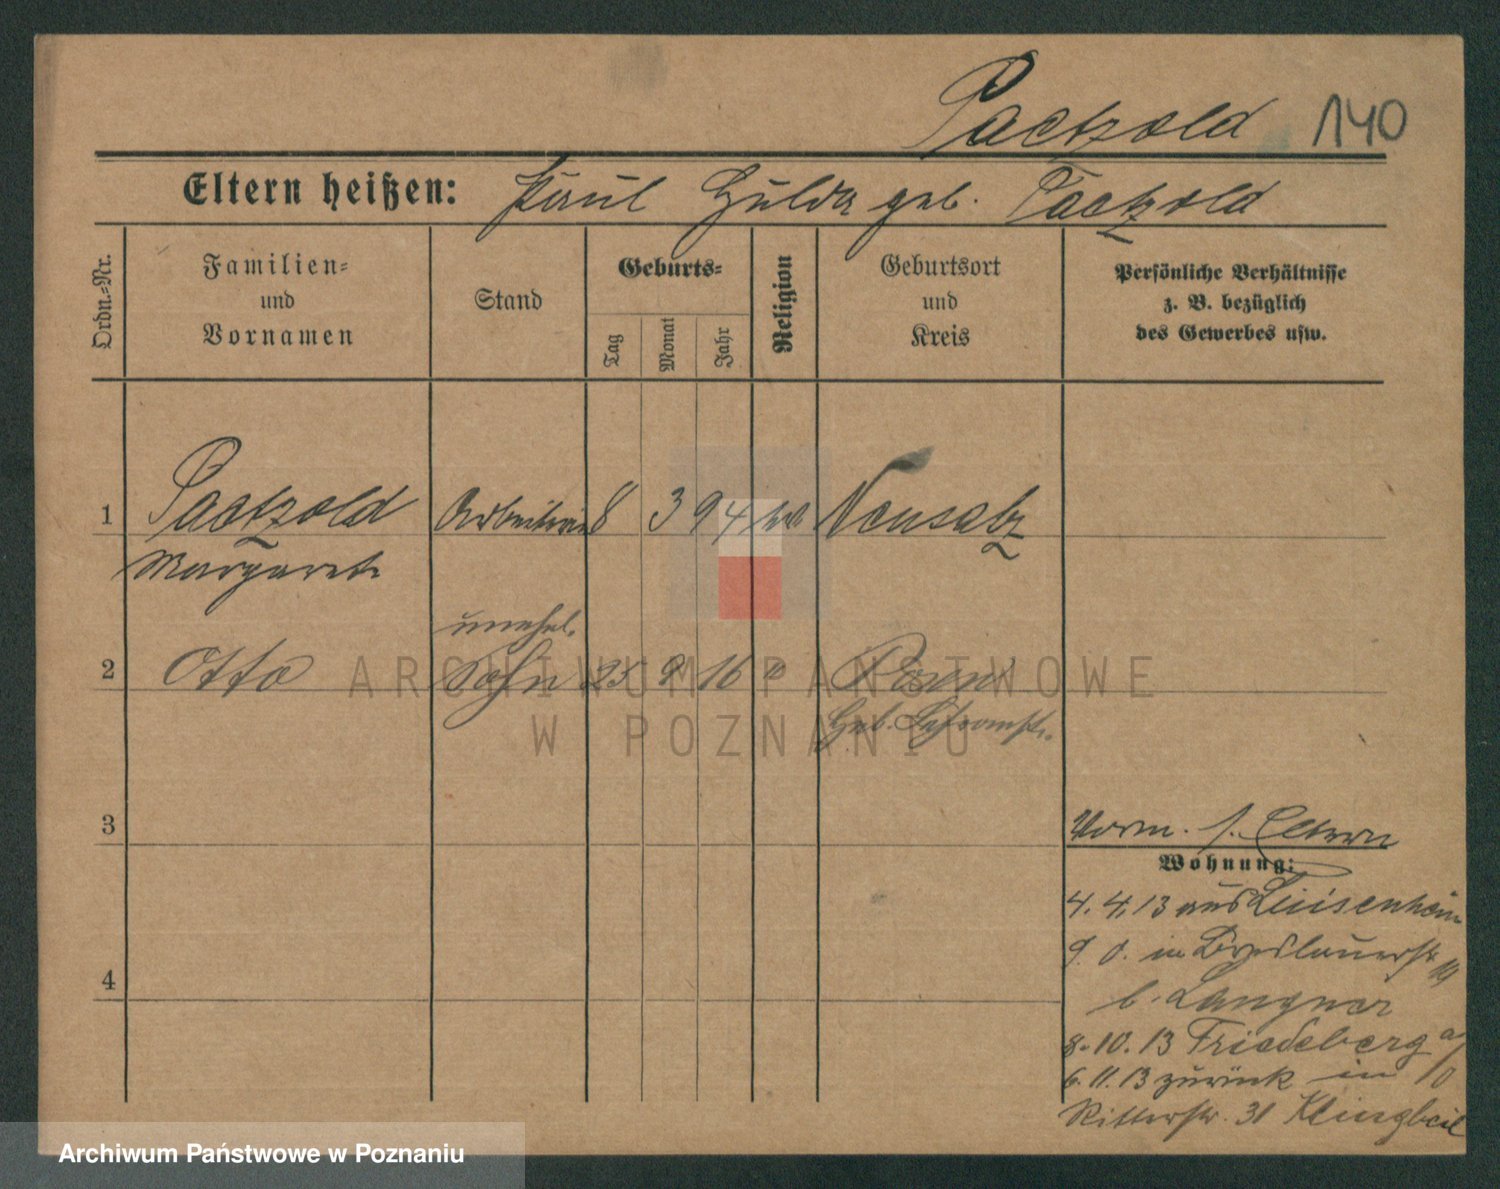 Paetzold 140
Eltern heißen: Paul Hulda geb. Paetzold
Ordn.-Nr.
Familien-
und
Vornamen
Stand
Geburts-
Tag
Monat
Jahr
Religion
Geburtsort
und
Kreis
Persönliche Verhältnisse
z. B. bezüglich
des Gewerbes usw.
1 Paetzold Arbeiterin 8 3 94 Neusalz
Margarete
unehel.
2 Otto Sohn 25 9 16 " Posen
Geb.
3
4
Vorm. s. Eltern
Wohnung:
4. 4. 13 aus Luisenhain
9. 0. in Breslauerstr. 19
b. Langner
8. 10. 13 Friedeberg a/0
6. 11. 13 zurück in
Ritterstr. 31 Klingbeil
ARCHIWUM PAŃSTWOWE
W POZNANIU
Archiwum Państwowe w Poznaniu